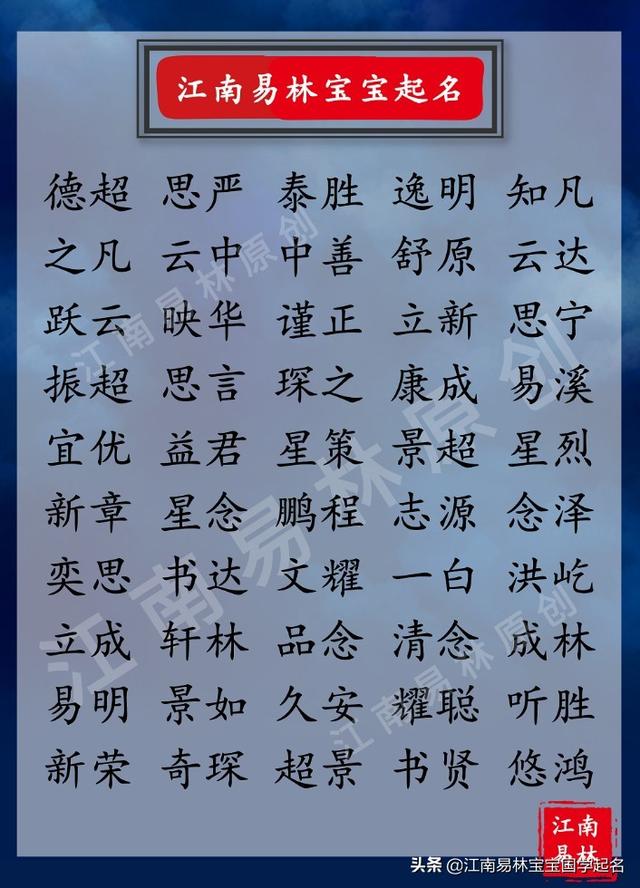 江南易林宝宝起名
德超 思严 泰胜 逸明 知凡
之凡 云中 中善 舒原 云达
跃云 映华 谨正 立新 思宁
振超 思言 琛之 康成 易溪
宜优 益君 星策 景超 星烈
新章 星念 鹏程 志源 念泽
奕思 书达 文耀 一白 洪屹
立成 轩林 品念 清念 成林
易明 景如 久安 耀聪 听胜
新荣 奇琛 超景 书贤 悠鸿
江南易林原创
江南易林原创
江南易林原创
江南
易林
头条 @江南易林宝宝国学起名